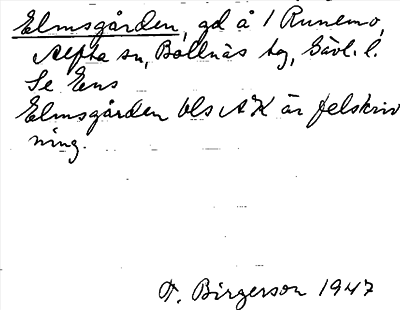 Elmsgården, gd å 1 Runemo,
Alfta sn, Bollnäs tg, Gävl. l.
Se Ens
Elmsgården bls AK är felskriv
ning.
F. Birgerson 1947